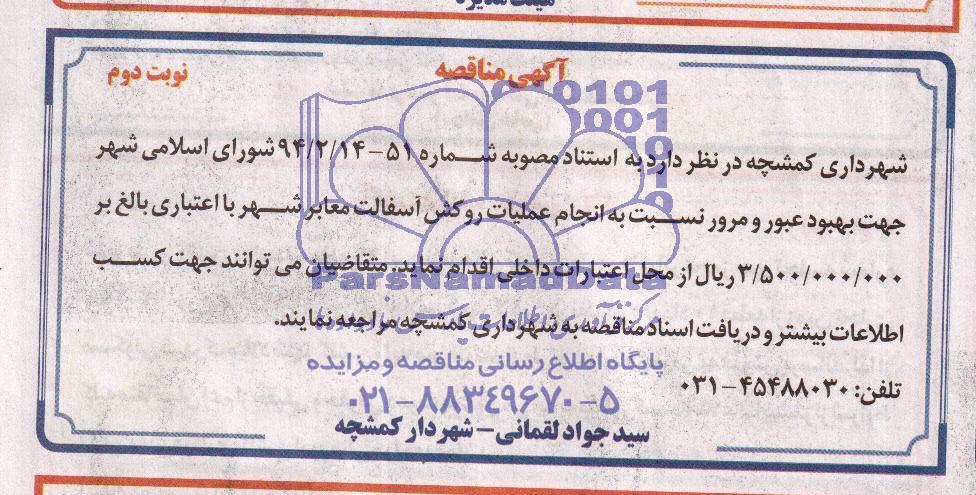 هیئت مدیره
آگهی مناقصه
نوبت دوم
شهرداری کمشچه در نظر دارد به استناد مصوبه شماره ۵۱-۹۴/۲/۱۴ شورای اسلامی شهر
جهت بهبود عبور و مرور نسبت به انجام عملیات روکش آسفالت معابر شهر با اعتباری بالغ بر
۳/۵۰۰/۰۰۰/۰۰۰ ریال از محل اعتبارات داخلی اقدام نماید. متقاضیان می توانند جهت کسب
ParsNamadData
اطلاعات بیشتر و دریافت اسناد مناقصه به شهرداری کمشچه مراجعه نمایند.
پایگاه اطلاع رسانی مناقصه و مزایده
تلفن: ۴۵۴۸۸۰۳۰-۰۳۱
۰۲۱-۸۸۳۴۹۶۷۰-۵
سید جواد لقمانی - شهردار کمشچه